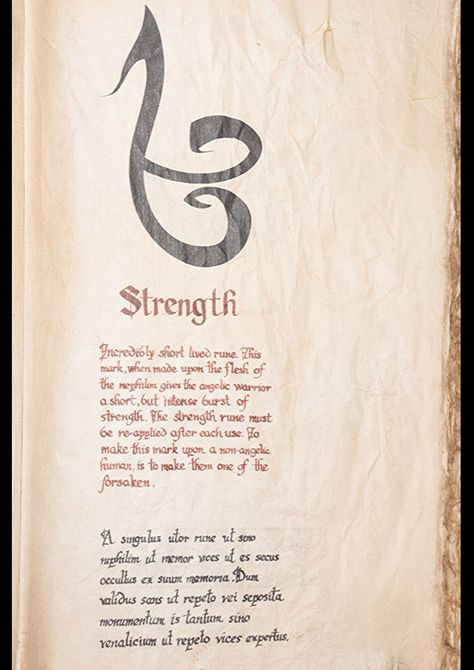 Strength
Incredibly short lived rune. This
mark, when made upon the flesh of
the nephilim gives the angelic warrior
a short, but intense burst of
strength. The strength rune must
be re-applied after each use. To
make this mark upon a non-angelic
human, is to make them one of the
forsaken.
A singulus utor rune ut sino
nephilim ut memor vices ut es secus
occultus ex suum memoria. Dum
validus sans ut repeto vei seposita
monumentum is tantum sino
venalicium ut repeto vices expertus.